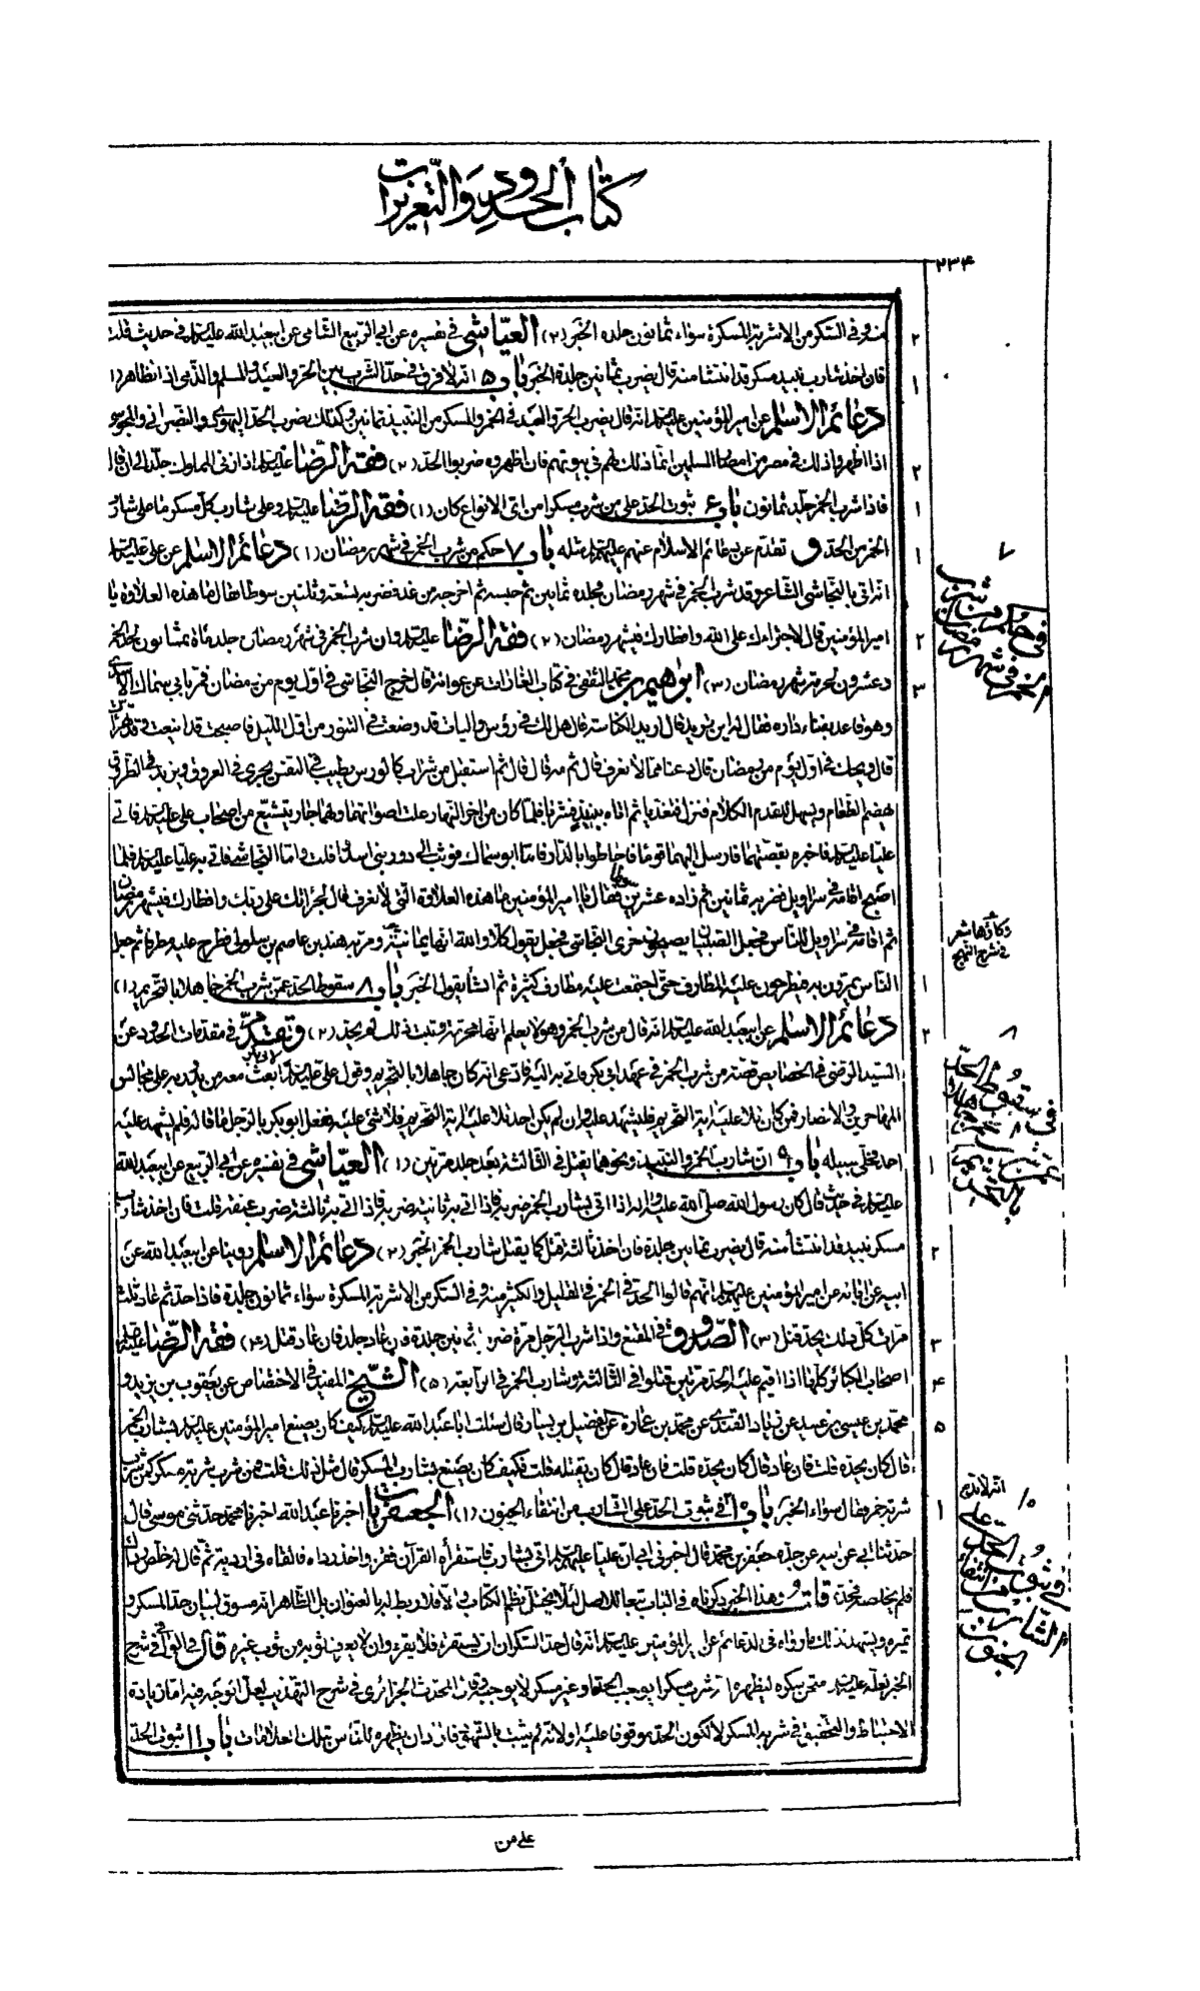 كتاب الحدود والتعزيرات
٢٣۴
منه وفي السكر من الاشربة المسكرة سواء ثمانون جلدة الخبر (٢) العياشي في تفسيره عن ابي الربيع الشامي عن ابيعبد الله عليه السلام في حديث قلت
فان اخذ شارب نبيذ مسكر قد انتشا منه قال يضرب ثمانين جلدة الخبر باب ۵ انه لا فرق في حد الشرب بين الحر والعبد والمسلم والذمي اذا تظاهر (١
دعائم الاسلام عن امير المؤمنين عليه السلام انه قال يضرب الحر والعبد في الخمر والمسكر من النبيذ ثمانين وكذلك يضرب الحد اليهودي والنصراني والمجوسي
اذا اظهروا ذلك في مصر من امصار المسلمين انما ذلك لهم في بيوتهم فان اظهروه ضربوا الحد (٢) فقه الرضا عليه السلام اذا زنى المملوك جلد الى ان قال
فاذا شرب الخمر جلد ثمانون باب ۶ ثبوت الحد على من شرب مسكرا من اي الانواع كان (١) فقه الرضا عليه السلام وعلى شارب كل مسكر ما على شارب
الخمر من الحد و تقدم عن دعائم الاسلام عنهم عليهم السلام مثله باب ٧ حكم من شرب الخمر في شهر رمضان (١) دعائم الاسلام عن علي عليه السلام
انه اتي بالنجاشي الشاعر وقد شرب الخمر في شهر رمضان فجلده ثمانين ثم حبسه ثم اخرجه من غد فضربه تسعة وثلثين سوطا فقال ما هذه العلاوة يا
امير المؤمنين قال لاجترائك على الله وافطارك في شهر رمضان (٢) فقه الرضا عليه السلام وان شرب الخمر في شهر رمضان جلد مائة ثمانون لحد الخمر
وعشرون لحرمة شهر رمضان (٣) ابراهيم بن محمد الثقفي في كتاب الغارات عن عوانة قال خرج النجاشي في اول يوم من رمضان فمر بابي سمال الاسدي
وهو قاعد بفناء داره فقال له اين تريد قال اريد الكناسة قال هل لك في رؤس واليات قد وضعت في التنور من اول الليل فاصبحت قد اينعت وقد تهرأت
قال ويحك في اول يوم من رمضان قال دعنا مما لا نعرف قال ثم مه قال قال ثم استقيك من شراب كالورس يطيب في النفس يجري في العروق ويزيد في الطرق
يهضم الطعام ويسهل للفدم الكلام فنزل فتغديا ثم اتاه بنبيذ فشرباه فلما كان من اخر النهار علت اصواتهما ولهما جار يتشيع من اصحاب علي عليه السلام فاتى
عليا عليه السلام فاخبره بقصتهما فارسل اليهما قوما فاحاطوا بالدار فاما ابو سمال فوثب الى دور بني اسد فافلت واما النجاشي فاتي به عليا عليه السلام فلما
اصبح اقامه في سراويل فضربه ثمانين ثم زاده عشرين سوطا فقال يا امير المؤمنين ما هذه العلاوة التي لا نعرف قال لجرأتك على ربك وافطارك في شهر رمضان
ثم اقامه في سراويل للناس فجعل الصبيان يصيحون خري النجاشي فجعل يقول كلا والله انها يمانية ومر به هند بن عاصم السلولي فطرح عليه مطرفا ثم جعل
الناس يمرون به فيطرحون عليه المطارف حتى اجتمعت عليه مطارف كثيرة ثم انشأ يقول الخبر باب ٨ سقوط الحد عمن شرب الخمر جاهلا بالتحريم (١)
دعائم الاسلام عن ابيعبد الله عليه السلام انه قال من شرب الخمر وهو لا يعلم انها محرمة وثبت ذلك لم يحد (٢) وتقدم في مقدمات الحدود عن
السيد الرضي في الخصايص قصة من شرب الخمر في عهد ابي بكر فاتي به اليه فادعى انه كان جاهلا بالتحريم وقول علي عليه السلام لابي بكر ابعث معه من يدور به على مجالس
المهاجرين والانصار فمن كان تلا عليه اية التحريم فليشهد عليه وان لم يكن احد تلا عليه اية التحريم فلا شئ عليه ففعل ابو بكر بالرجل ما قاله فلم يشهد عليه
احد فخلى سبيله باب ٩ ان شارب الخمر والنبيذ ونحوهما يقتل في الثالثة بعد جلد مرتين (١) العياشي في تفسيره عن ابي الربيع عن ابيعبد الله
عليه السلام في حديث قال كان رسول الله صلى الله عليه واله اذا اتي بشارب الخمر ضربه فاذا اتي به ثانية ضربه فاذا اتي به ثالثة ضرب عنقه قلت فان اخذ شارب
مسكر نبيذ قد انتشأ منه قال يضرب ثمانين جلدة فان اخذ ثالثة قتل كما يقتل شارب الخمر الخبر (٢) دعائم الاسلام روينا عن ابيعبد الله عن
ابيه عن ابائه عن امير المؤمنين عليهم السلام انهم قالوا الحد في الخمر في القليل والكثير منه وفي السكر من الاشربة المسكرة سواء ثمانون جلدة فاذا حد ثم عاد ثلث
مرات كل ذلك يحد قتل (٣) الصدوق في المقنع واذا شرب الرجل مرة ضرب ثمانين جلدة فان عاد جلد فان عاد قتل (۴) فقه الرضا عليه السلام
اصحاب الكبائر كلها اذا اقيم عليهم الحد مرتين قتلوا في الثالثة وشارب الخمر في الرابعة (۵) الشيخ المفيد في الاختصاص عن يعقوب بن يزيد و
محمد بن عيسى بن عبيد عن زياد القندي عن محمد بن عمارة عن فضيل بن يسار قال سئلت ابا عبد الله عليه السلام كيف كان يصنع امير المؤمنين عليه السلام بشارب الخمر
قال كان يحده قلت فان عاد قال كان يحده قلت فان عاد قال كان يقتله قلت فكيف كان يصنع بشارب المسكر قال مثل ذلك قلت فمن شرب شربة مسكر كمن شرب
شربة خمر فقال سواء الخبر باب ١٠ في ثبوت الحد على الشارب من انتفاء الجنون (١) الجعفريات اخبرنا عبد الله اخبرنا محمد حدثني موسى قال
حدثنا ابي عن ابيه عن جده جعفر بن محمد قال اخبرني ابي ان عليا عليه السلام اتي بشارب فاستقرأه القرآن فقرء واخذ رداءه فالقاه في اردية ثم قال له خلص رداك
فلم يخلصه فحده قلت هذا الخبر ذكرناه في الباب تبعا للاصل لئلا يختل نظم الكتاب والا فلا ربط له بالعنوان بل الظاهر انه مسوق لبيان حد المسكر و
تميزه ويشهد لذلك ما رواه في الدعائم عن امير المؤمنين عليه السلام انه قال حد السكران ان يستقرء فلا يقرء وان لا يعرف ثوبه من ثوب غيره قال في الوافي في شرح
الخبر لعله عليه السلام
الاحتياط والتحقيق في شربه المسكر لا لكون الحد موقوفا عليه او لانه لم يثبت بالشهود فاراد ان يظهره للناس بتلك العلامات باب ١١ ثبوت الحد
على من
٧
في حكم من شرب
الخمر في شهر رمضان
٨
في سقوط الحد
عمن شرب الخمر جاهلا
بالتحريم
١٠
في ثبوت الحد على
الشارب من انتفاء
الجنون